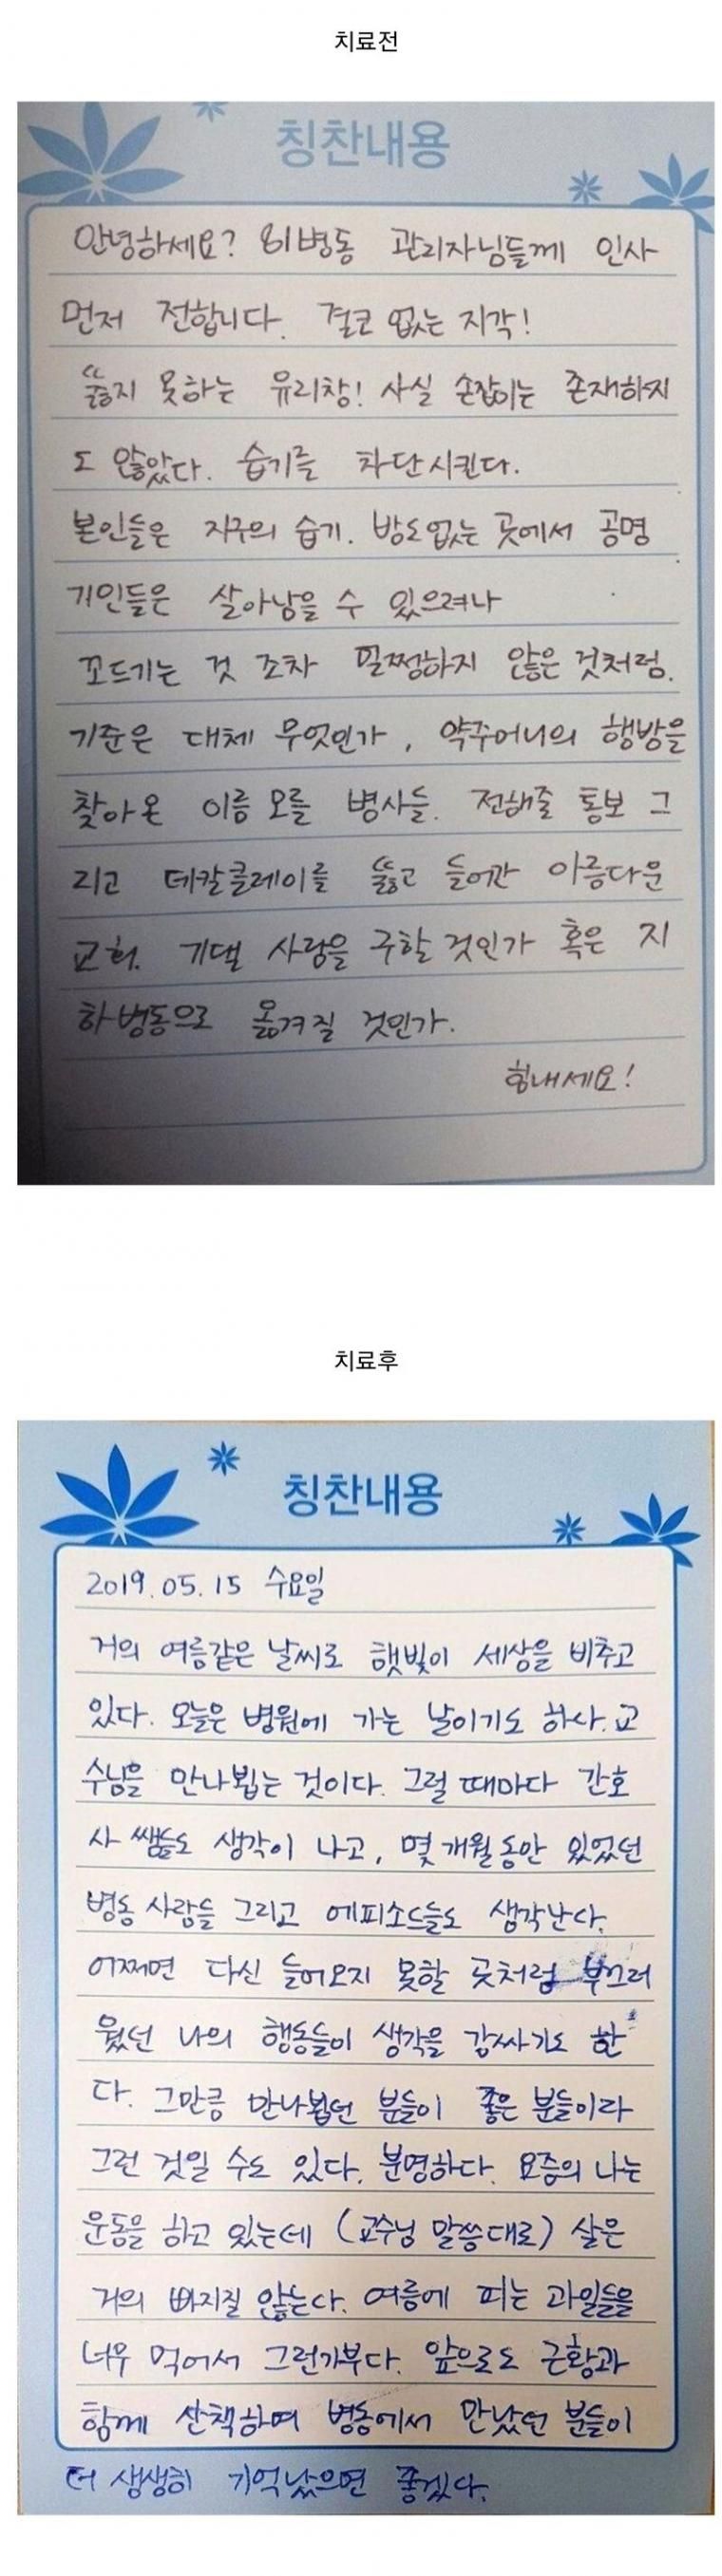 치료전
칭찬내용
안녕하세요? 81병동 관리자님들께 인사
먼저 전합니다. 결코 없는 지각!
"뚫지 못하는 유리창! 사실 손잡이는 존재하지
도 않았다. 습기를 차단시킨다.
본인들은 지구의 습기. 방도없는 곳에서 공명
거인들은 살아남을 수 있으려나
꼬드기는 것 조차 멀쩡하지 않은 것처럼.
기준은 대체 무엇인가, 약주머니의 행방을
찾아온 이름 모를 병사들. 전해줄 통보 그
리고 데칼클레이를 뚫고 들어간 아름다운
교회. 기댈 사람을 구할 것인가 혹은 지
하병동으로 옮겨질 것인가.
힘내세요!
치료후
칭찬내용
2019.05.15 수요일
거의 여름같은 날씨로 햇빛이 세상을 비추고
있다. 오늘은 병원에 가는 날이기도 하사. 교
수님을 만나뵙는 것이다. 그럴 때마다 간호
사 쌤들도 생각이 나고, 몇 개월동안 있었던
병동 사람들 그리고 에피소드들도 생각난다.
어쩌면 다신 들어오지 못할 곳처럼 부끄러
웠던 나의 행동들이 생각을 감싸기도 한
다. 그만큼 만나뵙던 분들이 좋은 분들이라
그런 것일 수도 있다. 분명하다. 요즘의 나는
운동을 하고 있는데 (교수님 말씀대로) 살은
거의 빠지질 않는다. 여름에 피는 과일들을
너무 먹어서 그런가부다. 앞으로도 근황과
함께 산책하며 병동에서 만났던 분들이
더 생생히 기억났으면 좋겠다.